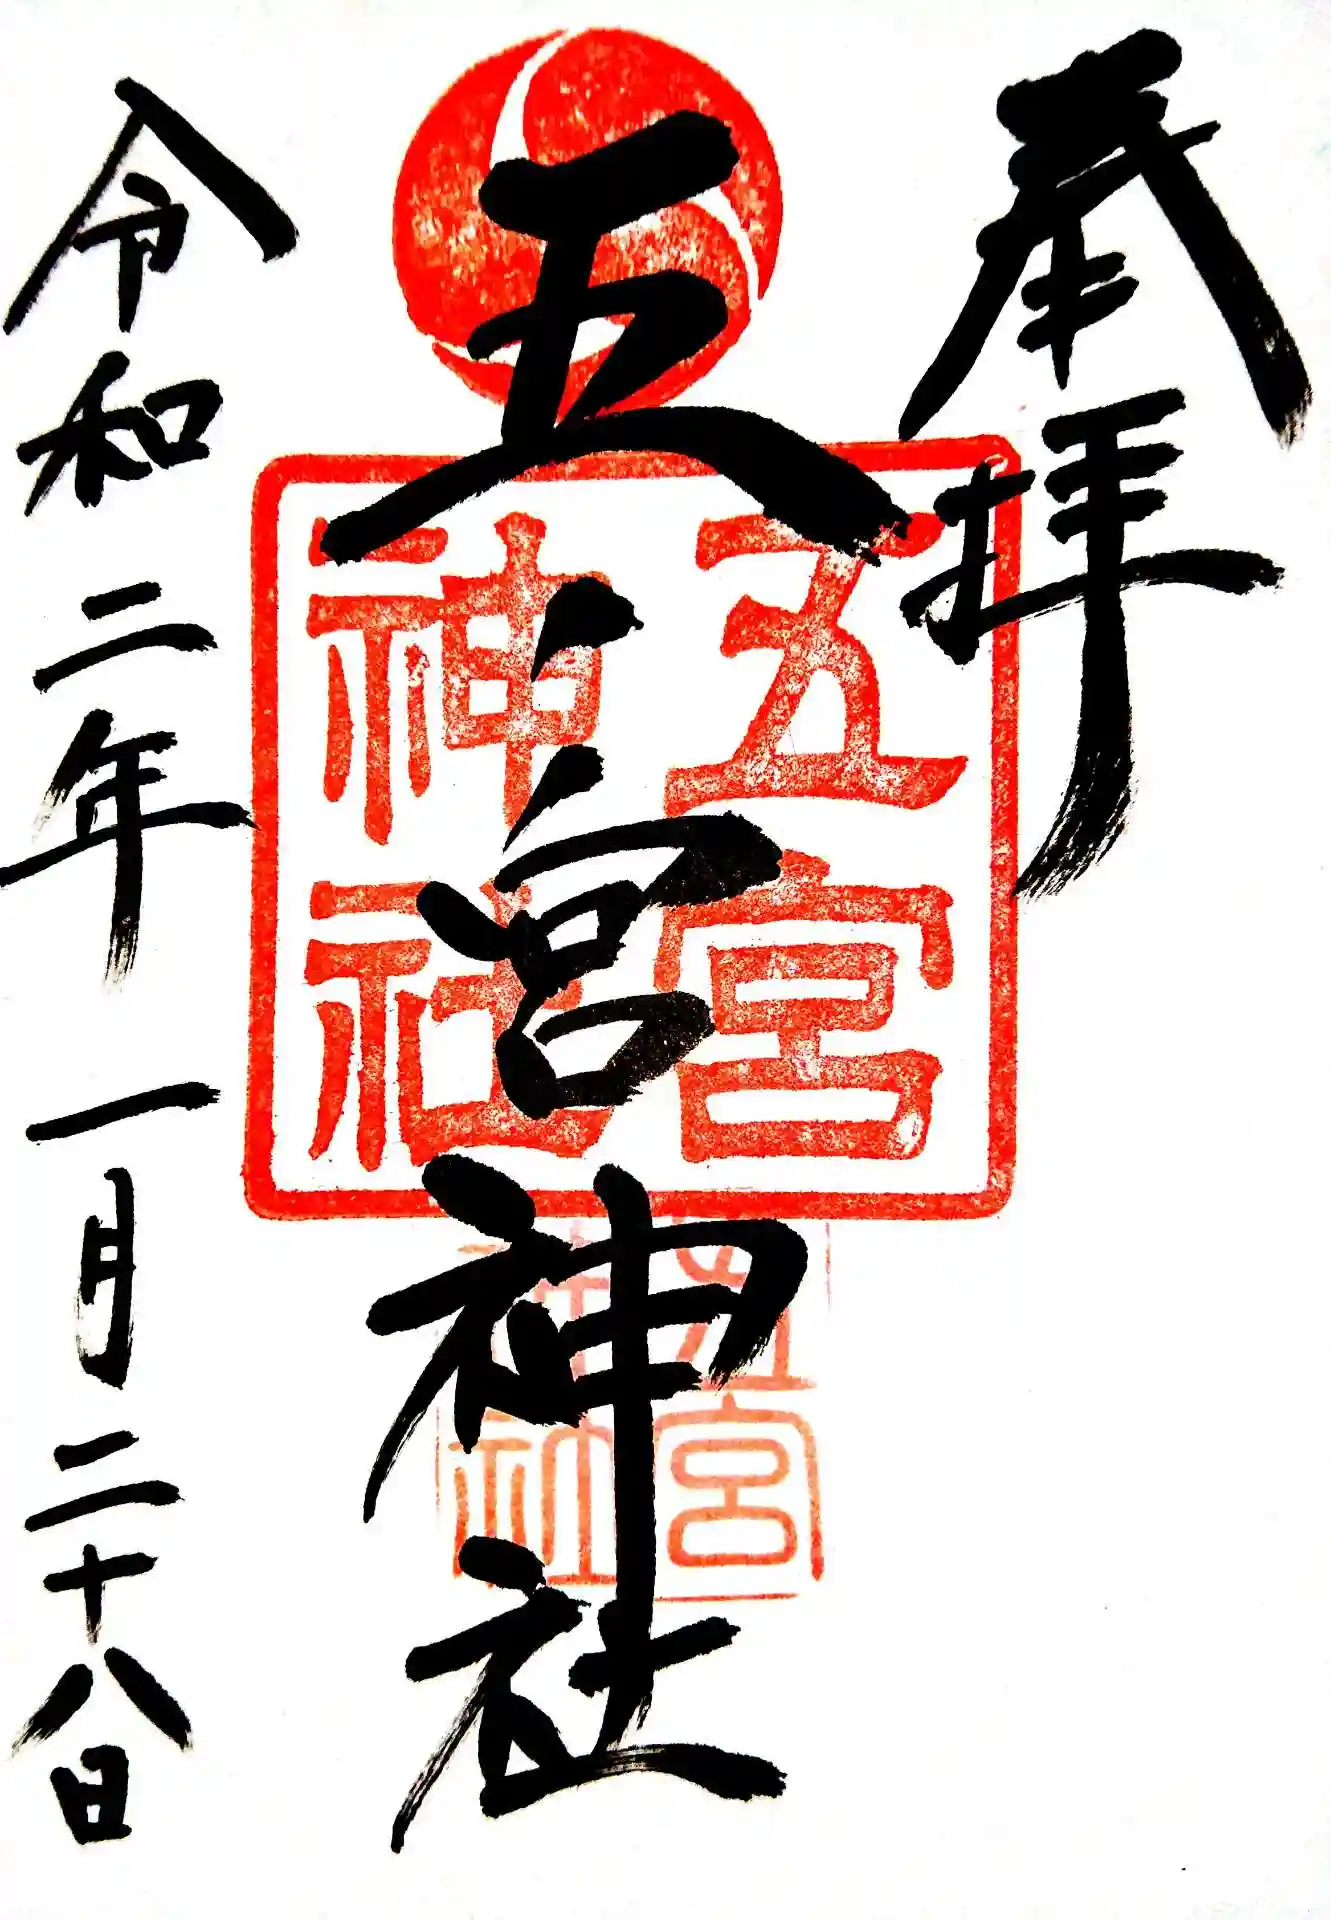 奉拝
五宮神社
令和二年 一月二十八日
五宮
神社
五宮
神社